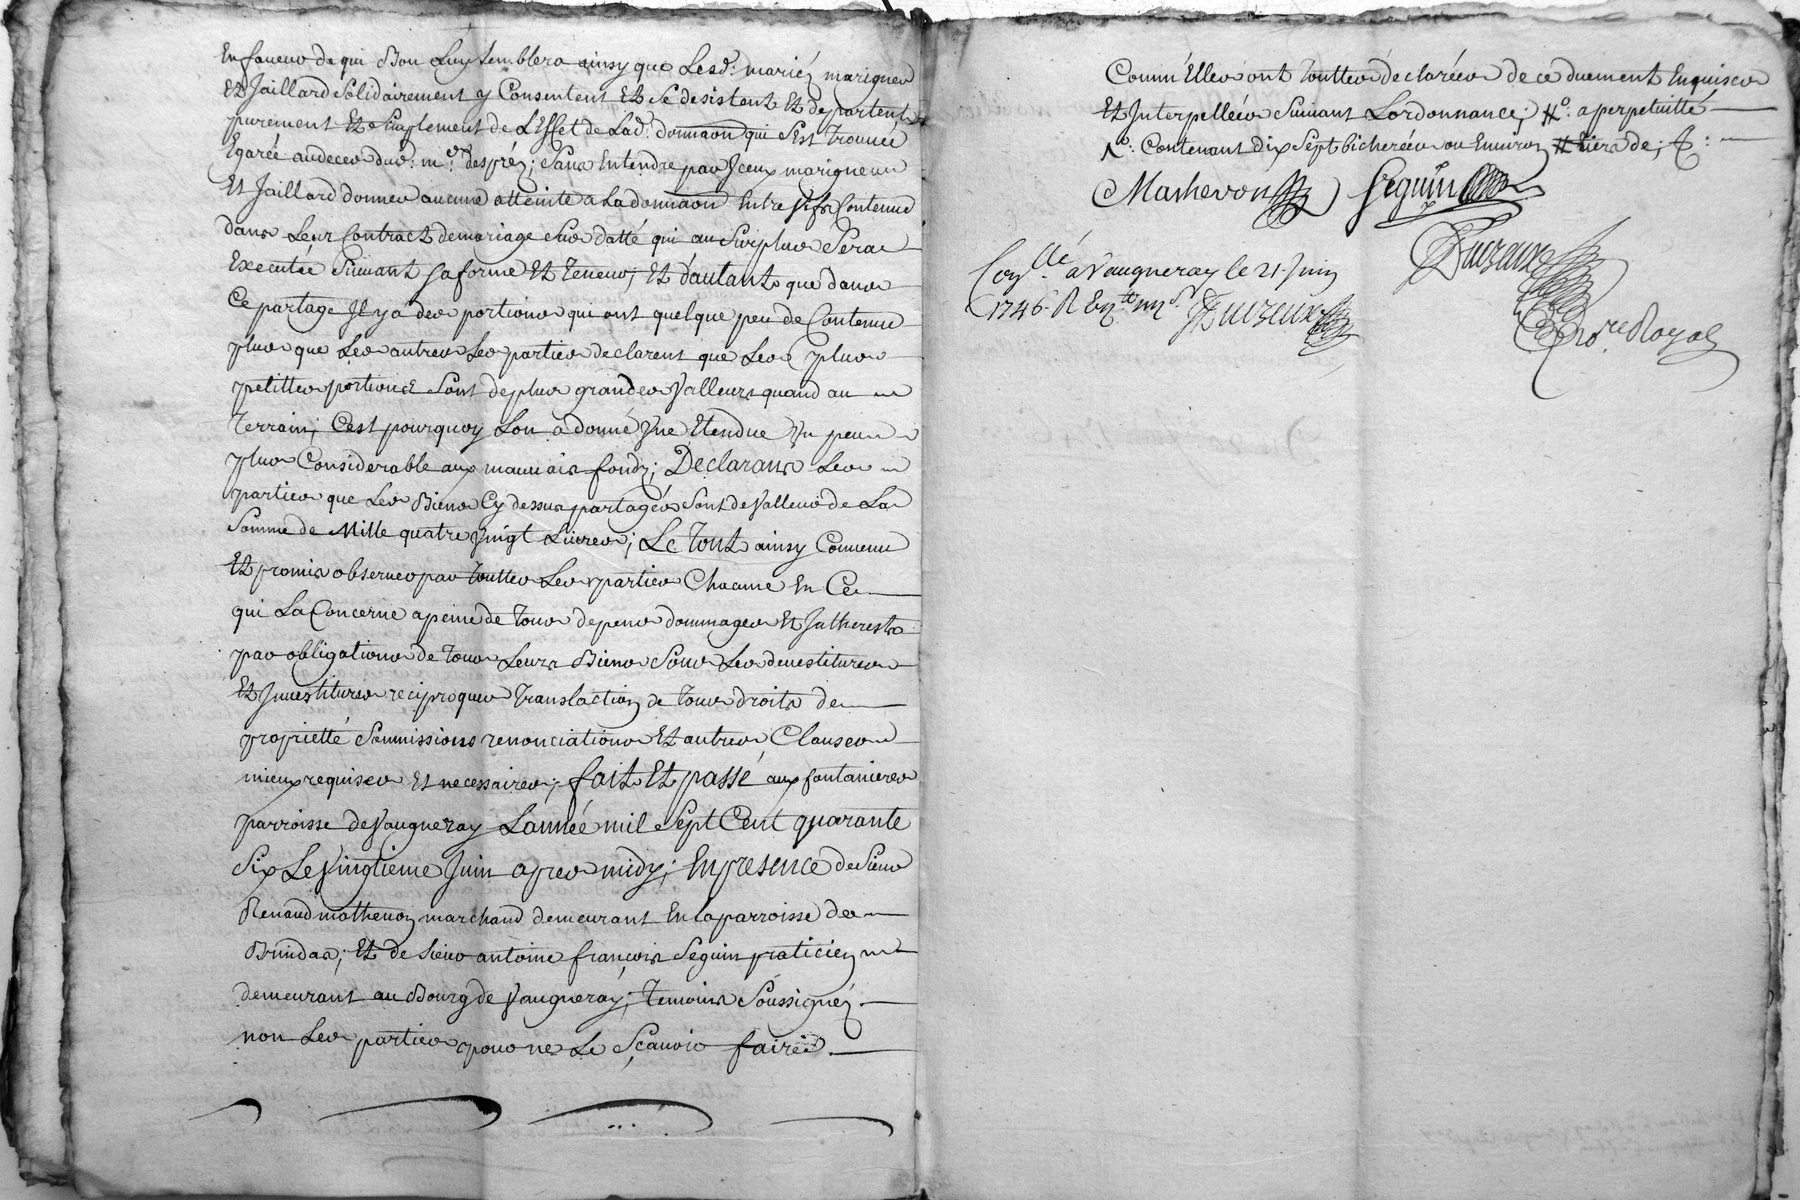 En faveur de qui Bon Luy Semblera ainsy que Lesd. mariéz marigner
Et Jaillard Solidairement y Consentent Et Se desistent Et departent
purement Et Simplement de L'Effet de Lad. donnaon qui S'Est trouvée
Egarée au deces dud. me. despréz; Sans Entendre par Jceux marigner
Et Jaillard donner aucune atteinte a La donnaon Entre Vifs Contenue
dans Leur Contract de mariage Sus datté qui au Surplus Sera
Executée Suivant Sa forme Et Teneur, Et d'autant que dans
Ce partage Jl y á des portions qui ont quelque peu de Contenue
plus que Les autres Les parties declarent que Les plus
petittes portions Sont de plus grandes Valleurs quand au
Terrain; C'est pourquoy Lon a donné Vne Etendue Vn peu
plus Considerable aux mauvais fondz; Declarans Les
parties que Les Biens Cy dessus partagés Sont de Valleur de La
Somme de Mille quatre Vingt Livres; Le Tout ainsy Convenu
Et promis observer par touttes Les parties Chacune En Ce
qui La Concerne a peine de tous depens dommages Et Jntherests
par obligations de tous Leurs Biens Sous Les devestitures
Et Jnvestitures reciproques Translaction de tous droits de
proprietté Soumissions renonciations Et autres Clauses
mieux requises Et necessaires; fait Et passé aux fontanieres
parroisse de Vaugneray L'année mil Sept Cent quarante
Six Le Vingtieme Juin apres midy; En presence de Sieur
Renaud mathevon marchand demeurant En la parroisse de
Brindas; Et de Sieur antoine françois Seguin praticien
demeurant au Bourg de Vaugneray; temoins Soussignéz
non Les parties pour ne Le Sçavoir faire
Comm'Elles ont touttes declarées de ce duement Enquises
Et Interpellées Suivant Lordonnance; #o. a perpetuitté
Contenant dix Sept bicherées ou Environ # tiers de;
Mathevon Seguin
Duizeux
Con.llé a Vaugneray le 21. Juin
1746. R Duizeux
No.re Royal